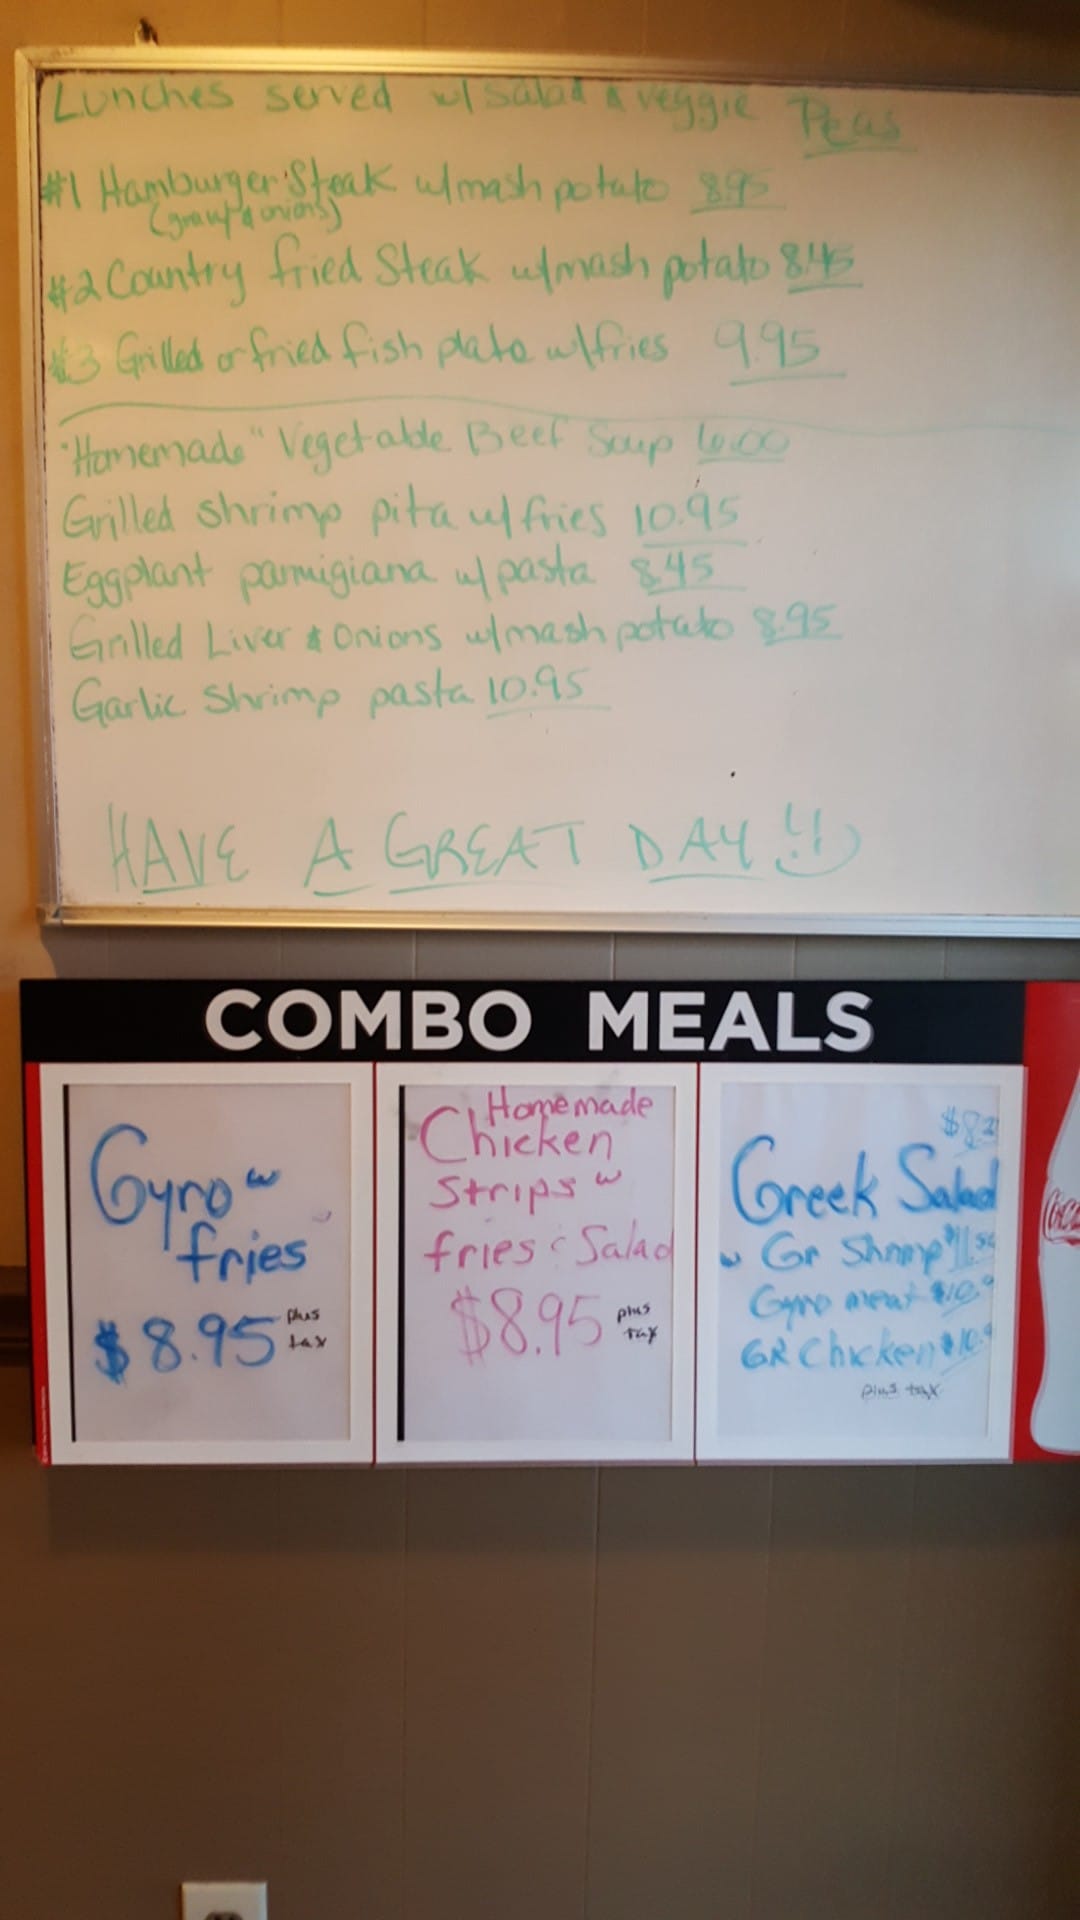 Lunches served w/ salad & veggie Peas
#1 Hamburger Steak w/mash potato 8.95
(gravy & onions)
#2 Country fried Steak w/mash potato 8.45
#3 Grilled or fried fish plate w/fries 9.95
"Homemade" Vegetable Beef Soup 6.00
Grilled shrimp pita w/ fries 10.95
Eggplant parmigiana w/ pasta 8.45
Grilled Liver & Onions w/mash potato 8.95
Garlic Shrimp pasta 10.95
HAVE A GREAT DAY !!
COMBO MEALS
Gyro w
fries
$8.95 plus
tax
Homemade
Chicken
Strips w
fries & Salad
$8.95 plus
tax
Greek Salad
w Gr Shrimp
Gyro meat
GR Chicken
plus tax